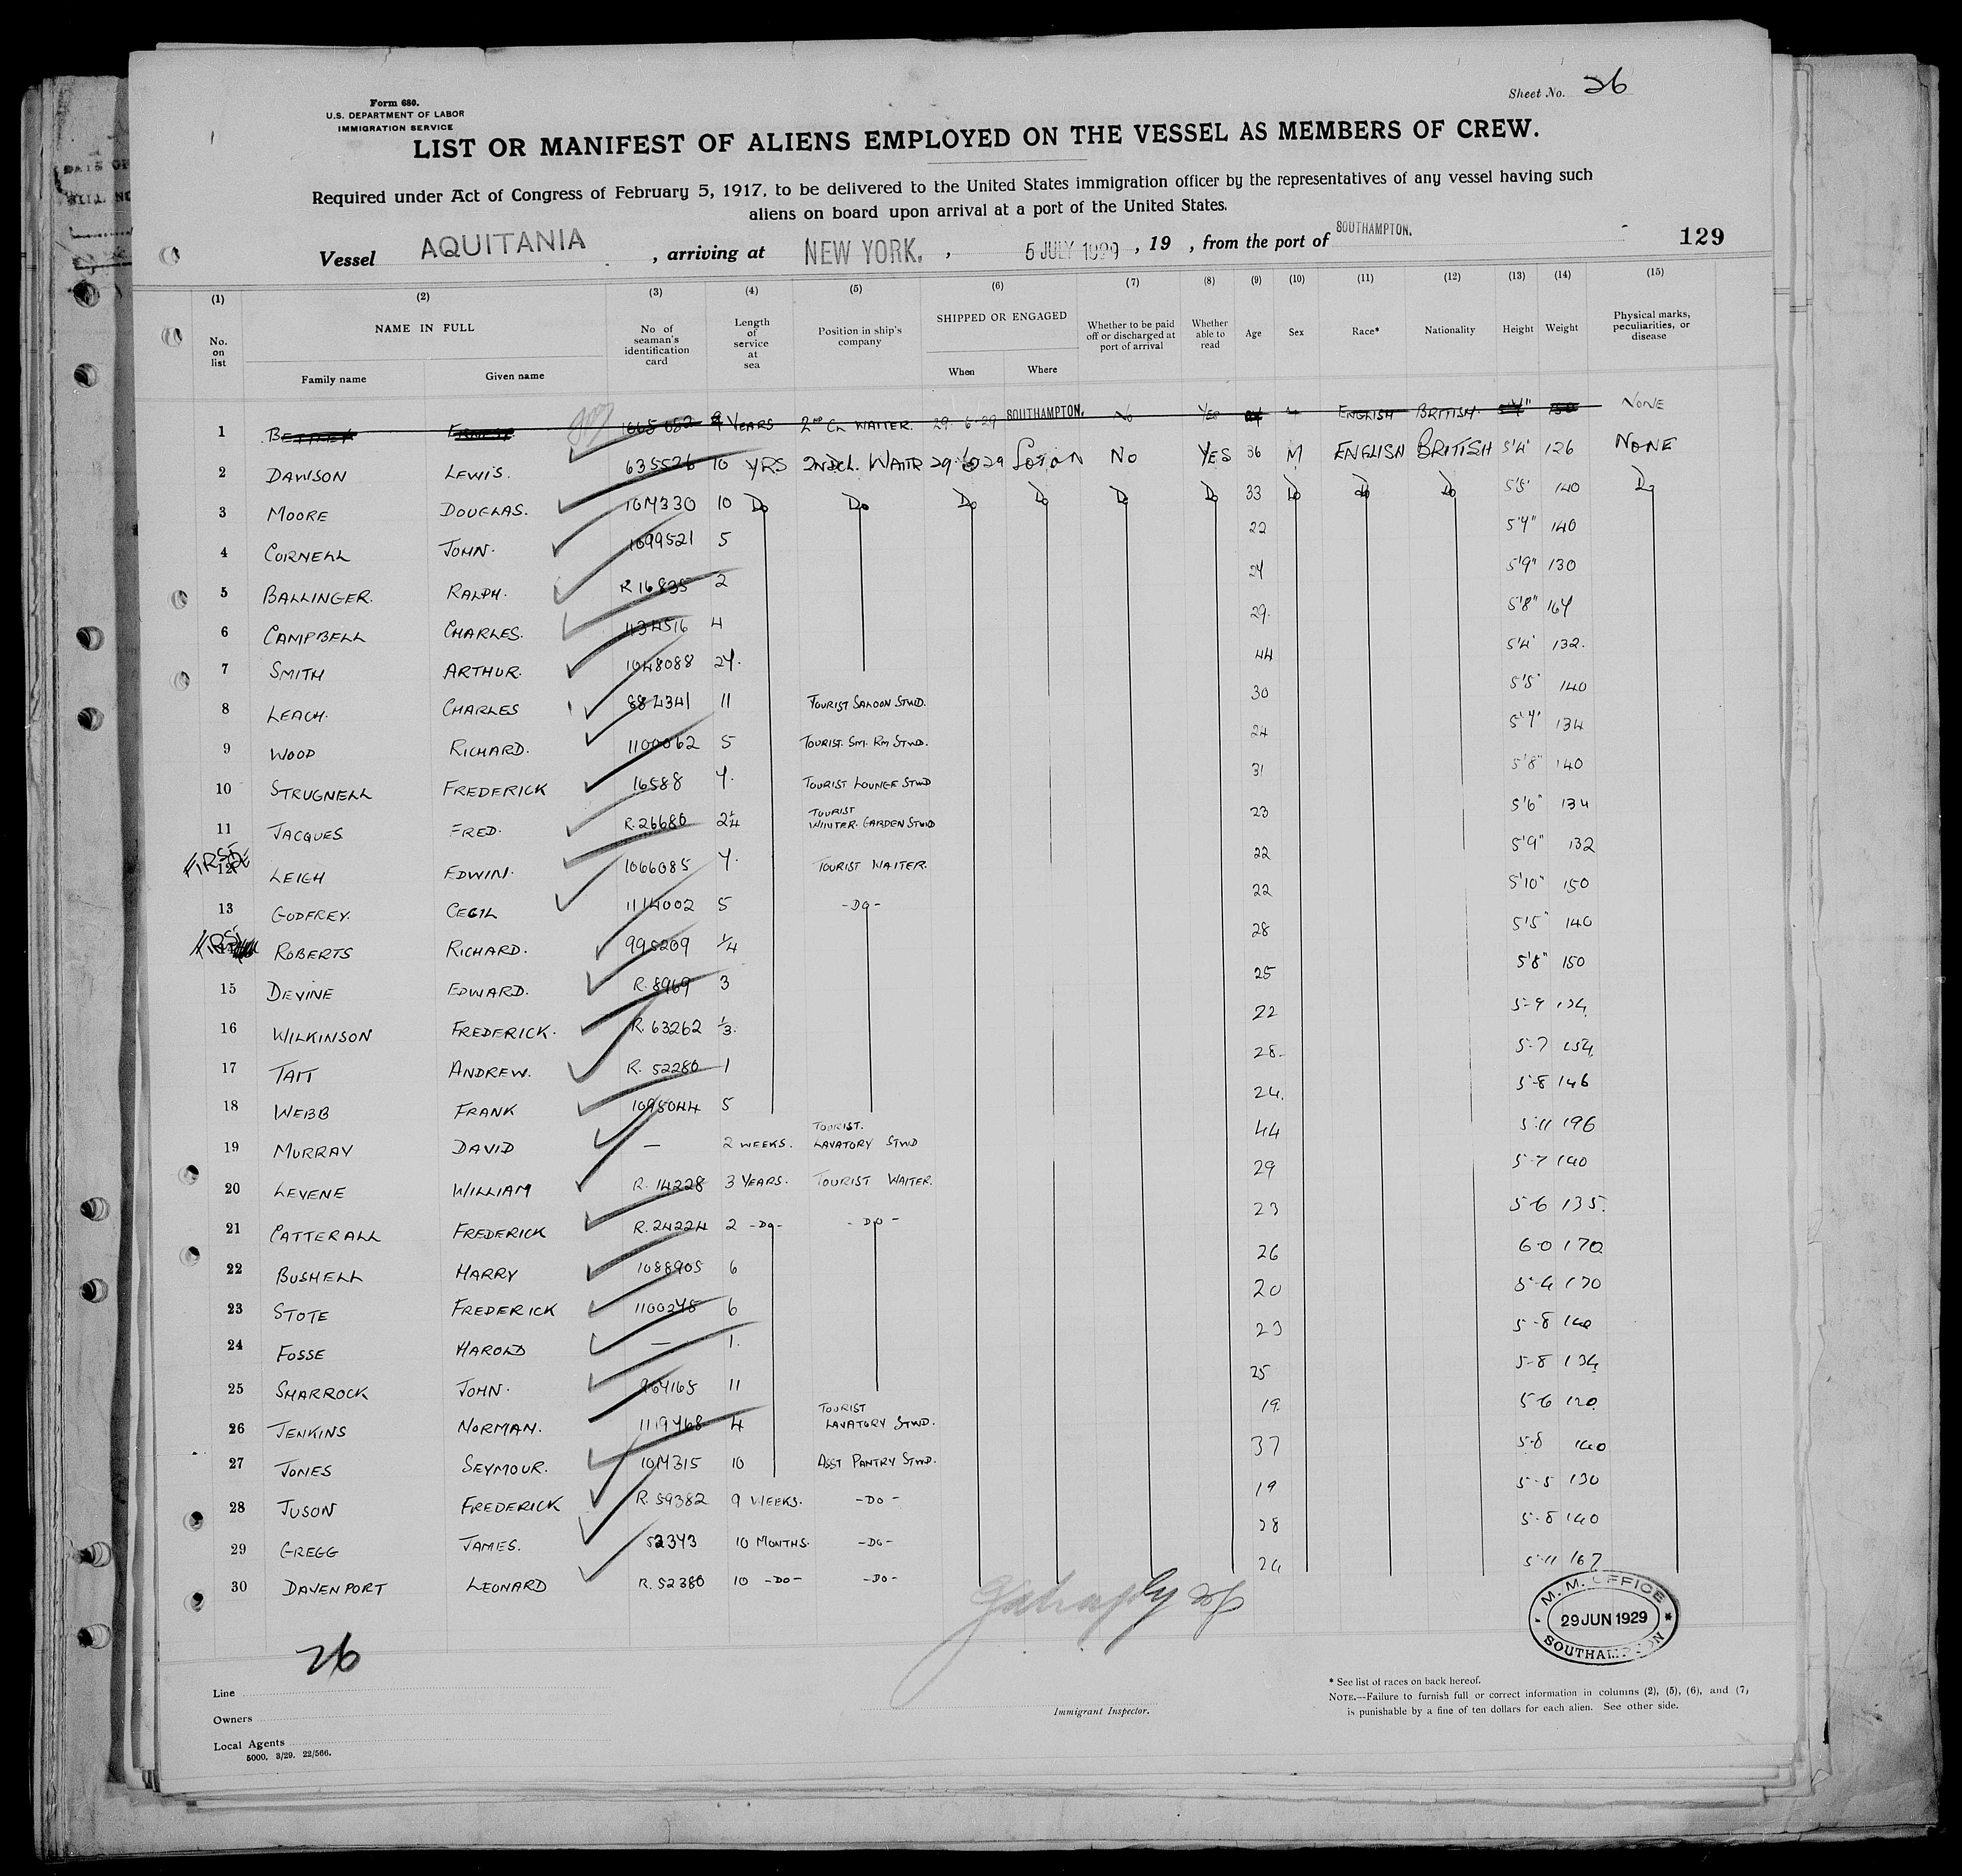 Sheet No. 26
Form 680.
U.S. DEPARTMENT OF LABOR
IMMIGRATION SERVICE
LIST OR MANIFEST OF ALIENS EMPLOYED ON THE VESSEL AS MEMBERS OF CREW.
Required under Act of Congress of February 5, 1917, to be delivered to the United States immigration officer by the representatives of any vessel having such
aliens on board upon arrival at a port of the United States.
Vessel AQUITANIA , arriving at NEW YORK. , 5 JULY 1929 , 19 , from the port of SOUTHAMPTON. 129
(1) (2) (3) (4) (5) (6) (7) (8) (9) (10) (11) (12) (13) (14) (15)
No. on list NAME IN FULL Family name Given name No of seaman's identification card Length of service at sea Position in ship's company SHIPPED OR ENGAGED When Where Whether to be paid off or discharged at port of arrival Whether able to read Age Sex Race* Nationality Height Weight Physical marks, peculiarities, or disease
1 YEARS 2nd CL WAITER. 29-6-29 SOUTHAMPTON. No YES ENGLISH BRITISH NONE
2 DAWSON LEWIS. 635526 10 YRS 2ND CL. WAITR 29-6-29 SOTON NO YES 36 M ENGLISH BRITISH 5'4" 126 NONE
3 MOORE DOUGLAS. 10 Do Do Do Do Do Do 33 Do Do Do 5'5" 140 Do
4 CORNELL JOHN. 1099521 5 22 140
5 BALLINGER. RALPH. R 16835 2 5'9" 130
6 CAMPBELL CHARLES. 434516 4 29. 5'8"
7 SMITH ARTHUR. 1048088 44 5'4" 132.
8 LEACH. CHARLES 884341 11 TOURIST SALOON STWD. 30 5'5" 140
9 WOOD RICHARD. 1100062 5 TOURIST. SM. RM STWD. 24 134
10 STRUGNELL FREDERICK 16588 TOURIST LOUNGE STWD 31 5'8" 140
11 JACQUES FRED. R.26680 2¼ TOURIST WINTER. GARDEN STWD 23 5'6" 134
FIRST 12 LEIGH EDWIN. 1066085 TOURIST WAITER. 22 5'9" 132
13 GODFREY. CECIL 1114002 5 -DO- 22 5'10" 150
ROBERTS RICHARD. 995209 ¼ 28 5'5" 140
15 DEVINE EDWARD. R. 8969 3 25 5'8" 150
16 WILKINSON FREDERICK. R. 63262 ⅓. 22 5-9 134
17 TAIT ANDREW. R. 52280 1 28. 5-7 154
18 WEBB FRANK 1095044 5 24. 5-8 146
19 MURRAY DAVID — 2 WEEKS. TOURIST. LAVATORY STWD 44 5-11 196
20 LEVENE WILLIAM R. 14228 3 YEARS. TOURIST WAITER. 29 5-7 140
21 CATTERALL FREDERICK R. 24224 2 -DO- -DO- 23 5-6 135.
22 BUSHELL HARRY 1088905 6 26 6-0 170
23 STOTE FREDERICK 1100245 6 20 5-4 130
24 FOSSE HAROLD — 1. 23 5-8 140
25 SHARROCK JOHN. 11 25 5-8 134
26 JENKINS NORMAN. 4 TOURIST LAVATORY STWD. 19. 5-6 120
27 JONES SEYMOUR. 10 ASST PANTRY STWD. 37 5-8 140
28 JUSON FREDERICK R. 59382 9 WEEKS. -DO- 19 5-5 130
29 GREGG JAMES. 10 MONTHS. -DO- 28 5-8 140
30 DAVENPORT LEONARD R. 52380 10 -DO- -DO- 24 5-11 167
M. M. OFFICE
29 JUN 1929
SOUTHAMPTON
26
Line
Owners
Local Agents
5000. 3/29. 22/566.
Immigrant Inspector.
* See list of races on back hereof.
NOTE.—Failure to furnish full or correct information in columns (2), (5), (6), and (7)
is punishable by a fine of ten dollars for each alien. See other side.